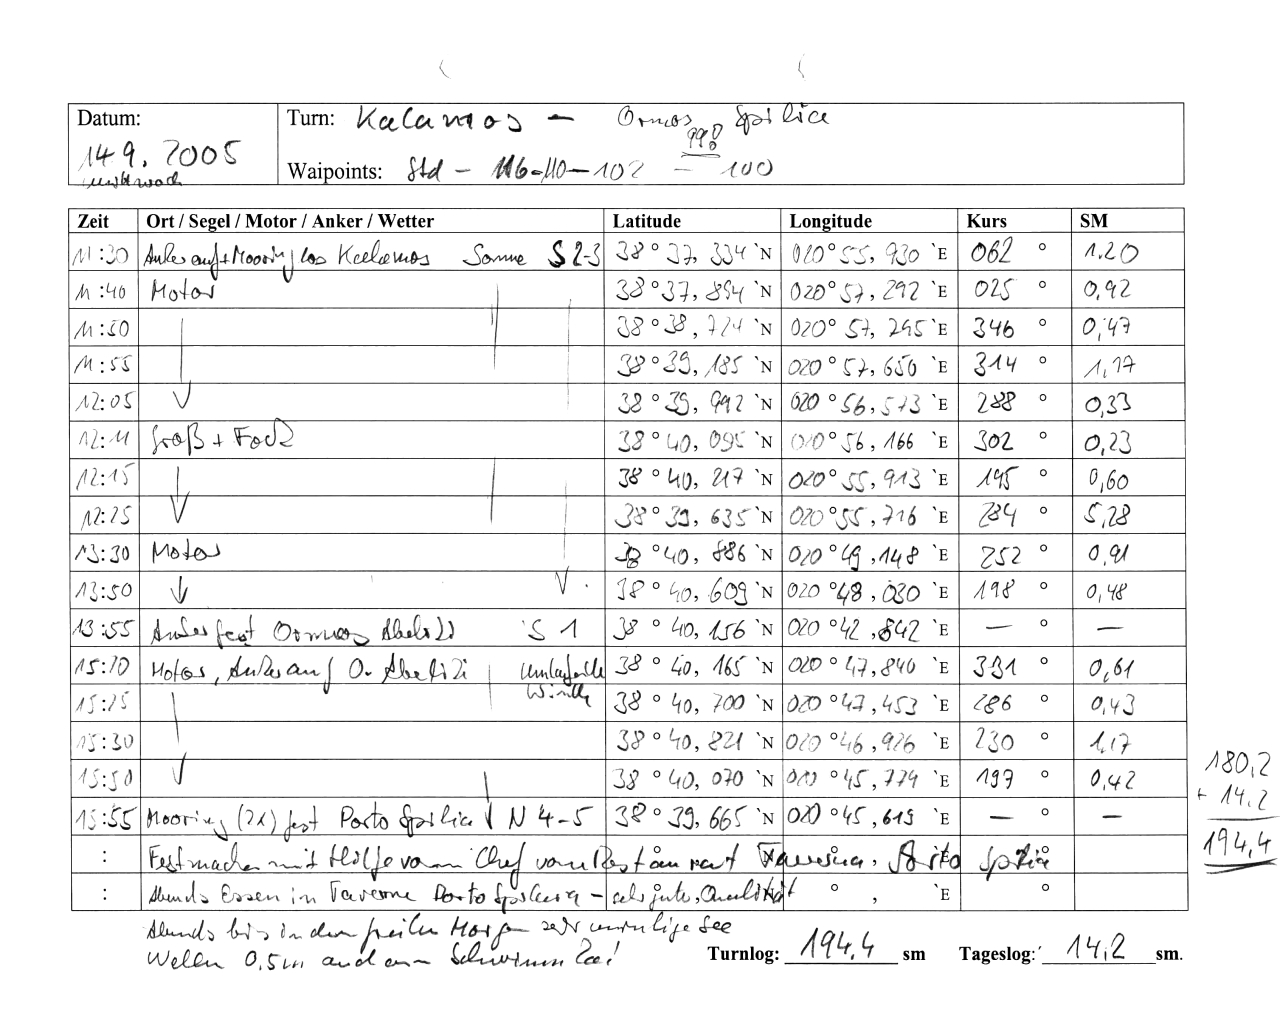 Datum:
14.9.2005
Mittwoch
Turn: Kalamos – Ormos Spilia
998
Waipoints: Std – 116-110-102 – 100
Zeit Ort / Segel / Motor / Anker / Wetter Latitude Longitude Kurs SM
11:30 Anker auf + Mooring los Kalamos Sonne S 2-3 38° 37, 334 `N 020° 55, 930 `E 062 ° 1.20
11:40 Motor 38° 37, 894 `N 020° 57, 292 `E 025 ° 0,92
11:50 38° 38, 724 `N 020° 57, 295 `E 346 ° 0,47
11:55 38° 39, 185 `N 020° 57, 650 `E 314 ° 1,17
12:05 38° 39, 992 `N 020° 56, 573 `E 288 ° 0,33
12:11 Groß + Fock 38° 40, 095 `N 020° 56, 166 `E 302 ° 0,23
12:15 38° 40, 217 `N 020° 55, 913 `E 195 ° 0,60
12:25 38° 39, 635 `N 020° 55, 716 `E 284 ° 5,28
13:30 Motor 38° 40, 886 `N 020° 49, 148 `E 252 ° 0,91
13:50 38° 40, 609 `N 020° 48, 030 `E 198 ° 0,48
13:55 Anker fest Ormos S 1 38° 40, 156 `N 020° 42, 842 `E — —
15:20 Motor, Anker auf O. Abeliki Umlaufende Winde 38° 40, 165 `N 020° 47, 840 `E 331 ° 0,61
15:25 38° 40, 700 `N 020° 47, 453 `E 286 ° 0,43
15:30 38° 40, 821 `N 020° 46, 926 `E 230 ° 1,17
15:50 38° 40, 070 `N 020° 45, 779 `E 197 ° 0,42
15:55 Mooring (2x) fest Porto Spilia N 4-5 38° 39, 665 `N 020° 45, 619 `E — —
: Festmachen mit Hilfe vom Chef vom Restaurant Taverna, Porto Spilia
: Abends Essen in Taverne Porto Spilia – sehr gute Qualität ° , `E °
Abends bis in den frühen Morgen sehr unruhige See
Wellen 0,5m und am
Turnlog: 194,4 sm Tageslog: 14,2 sm.
180,2
+ 14,2
194,4